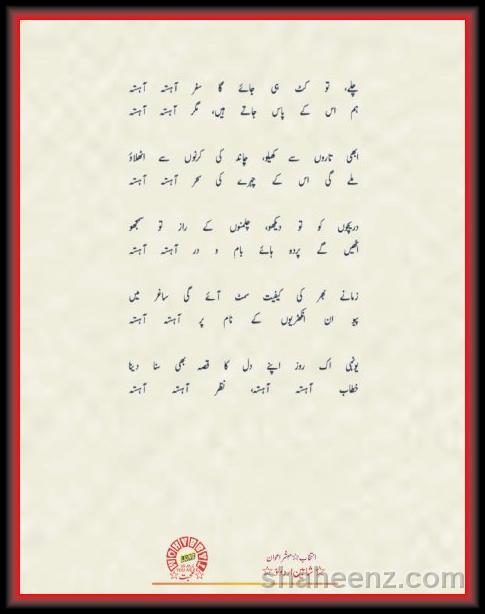 چلے، تو کٹ ہی جائے گا سفر آہستہ آہستہ
ہم اس کے پاس جاتے ہیں، مگر آہستہ آہستہ
ابھی تاروں سے کھیلو، چاند کی کرنوں سے اٹھلاؤ
ملے گی اس کے چہرے کی سحر آہستہ آہستہ
دریچوں کو تو دیکھو، چلمنوں کے راز تو سمجھو
اٹھیں گے پردہ ہائے بام و در آہستہ آہستہ
زمانے بھر کی کیفیت سمٹ آئے گی ساغر میں
پیو ان انکھڑیوں کے نام پر آہستہ آہستہ
یونہی اک روز اپنے دل کا قصہ بھی سنا دینا
خطاب آہستہ آہستہ، نظر آہستہ آہستہ
LOVE
محبت
shaheenz.com